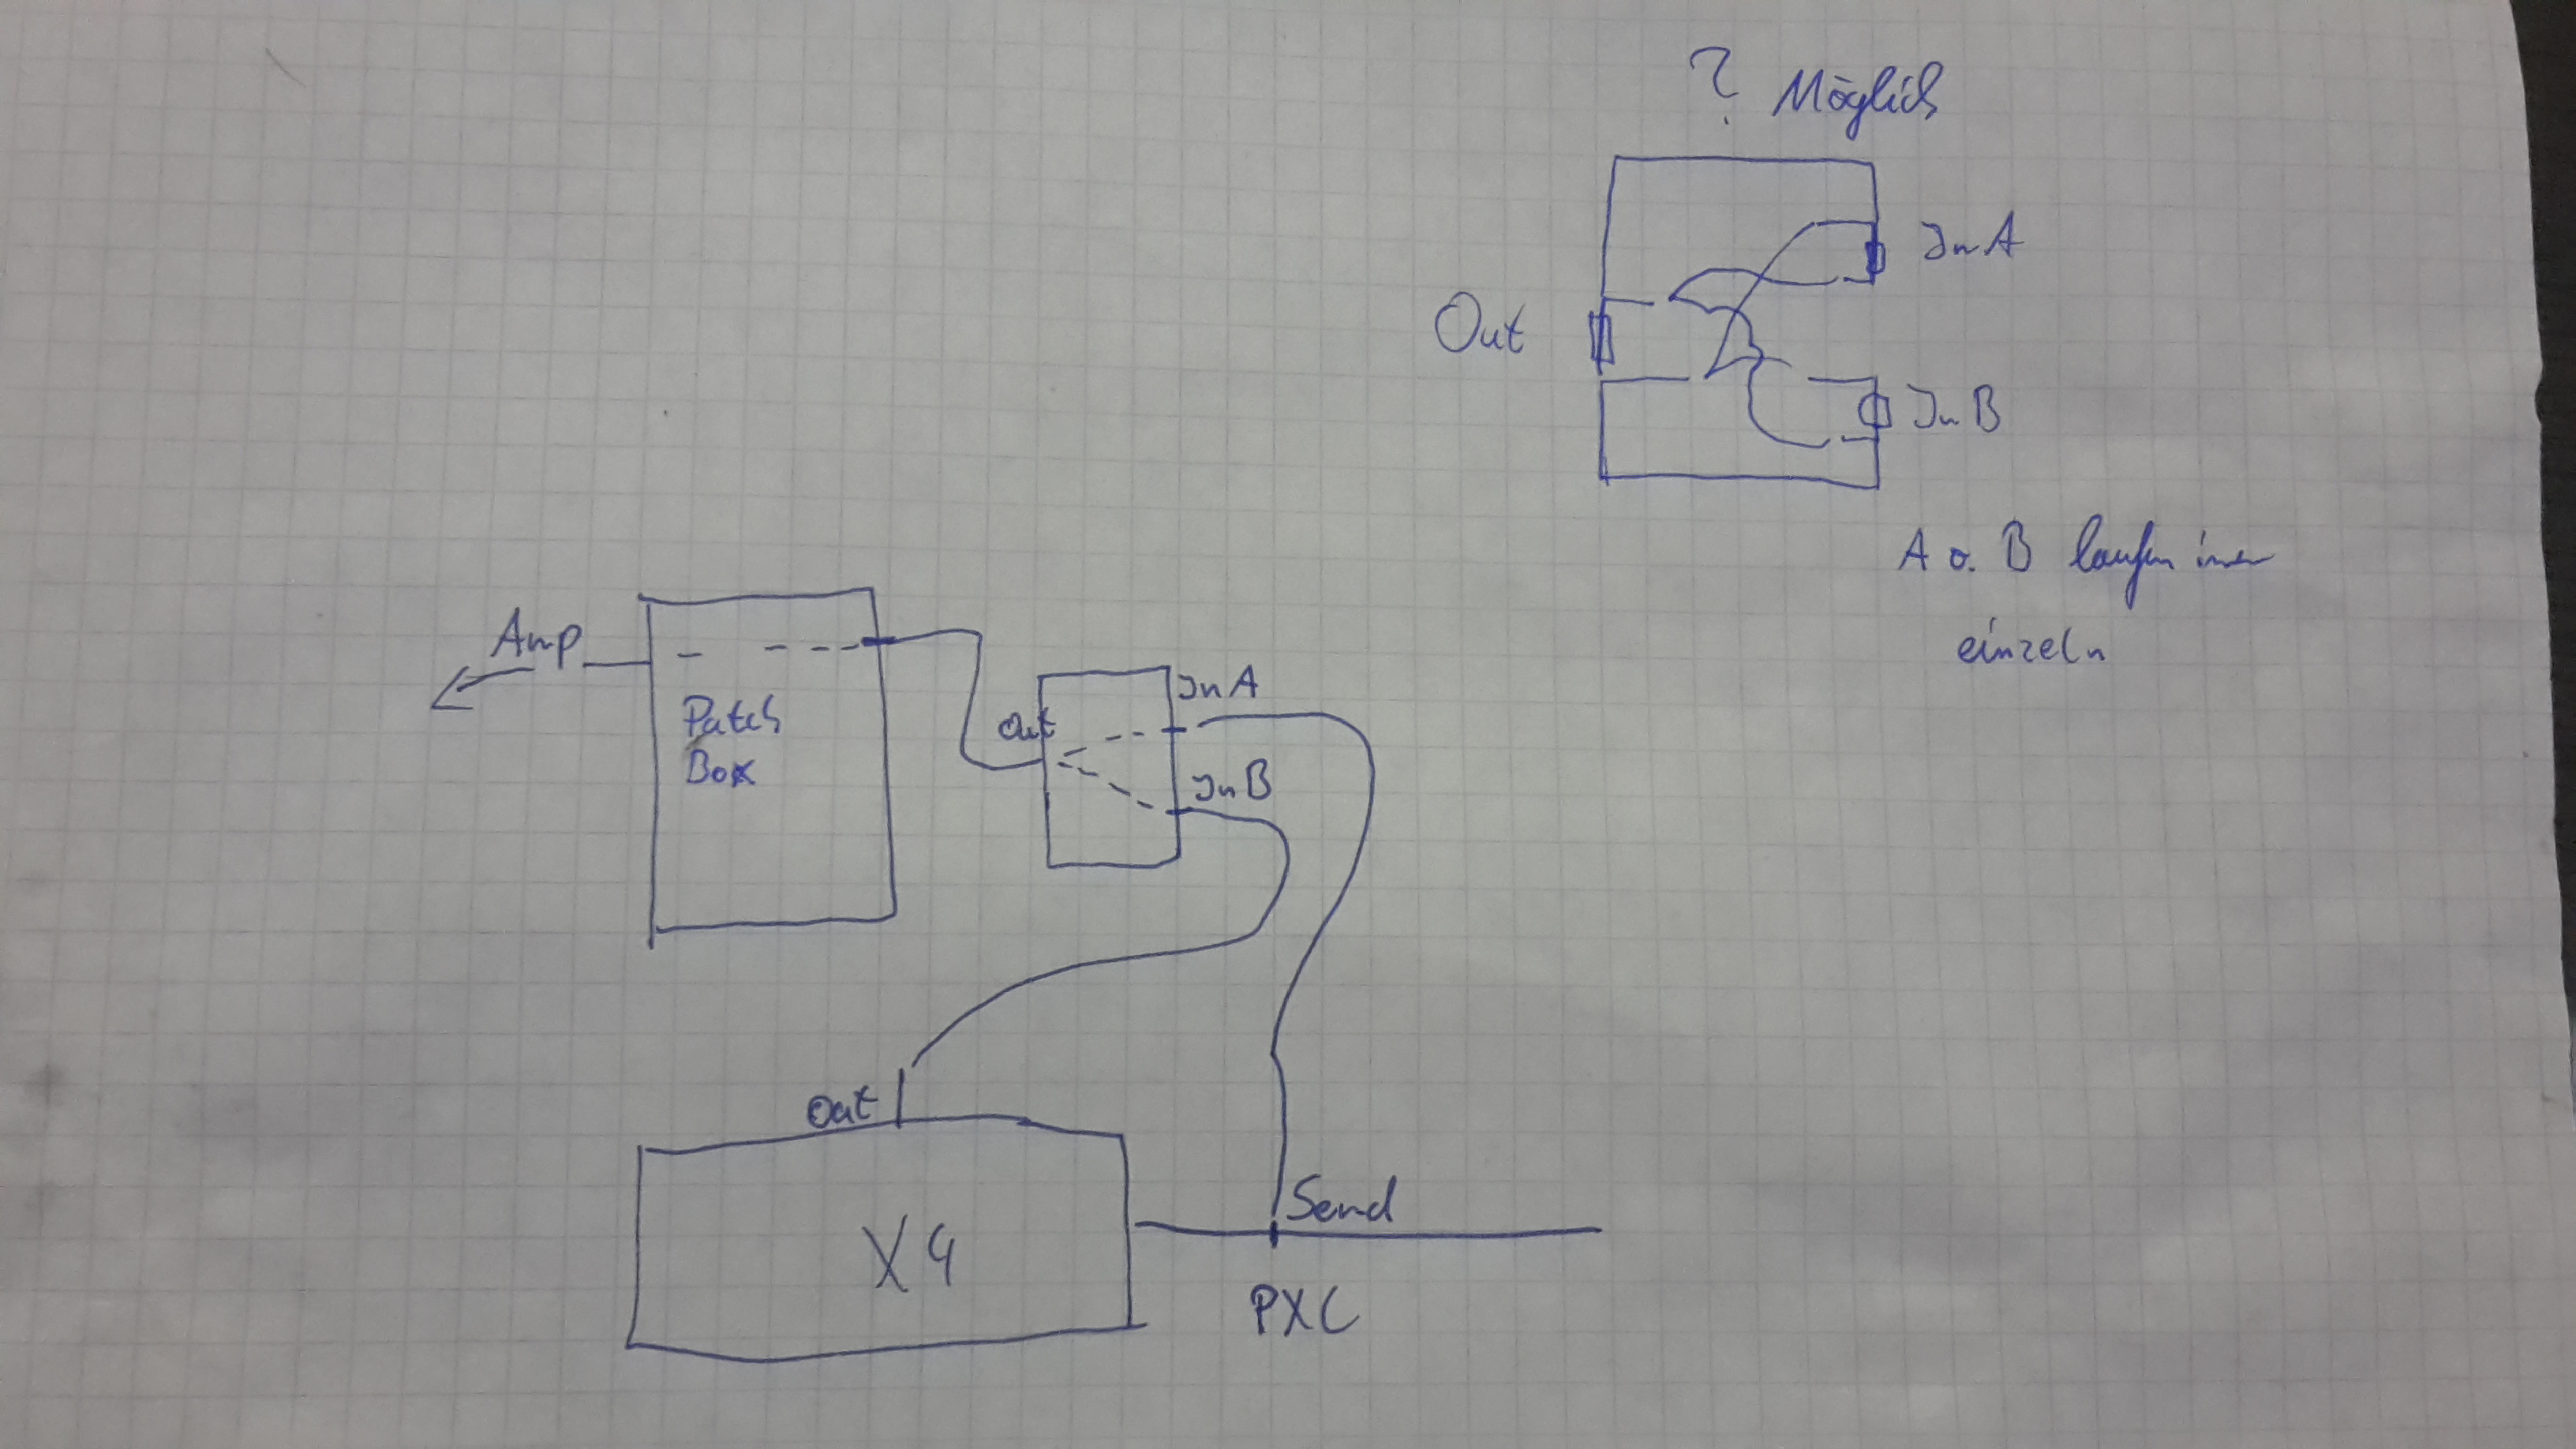 ? Möglich
In A
Out
In B
A o. B laufen immer
einzeln
Amp
Patch
Box
In A
Out
In B
Out
Send
X4
PXC